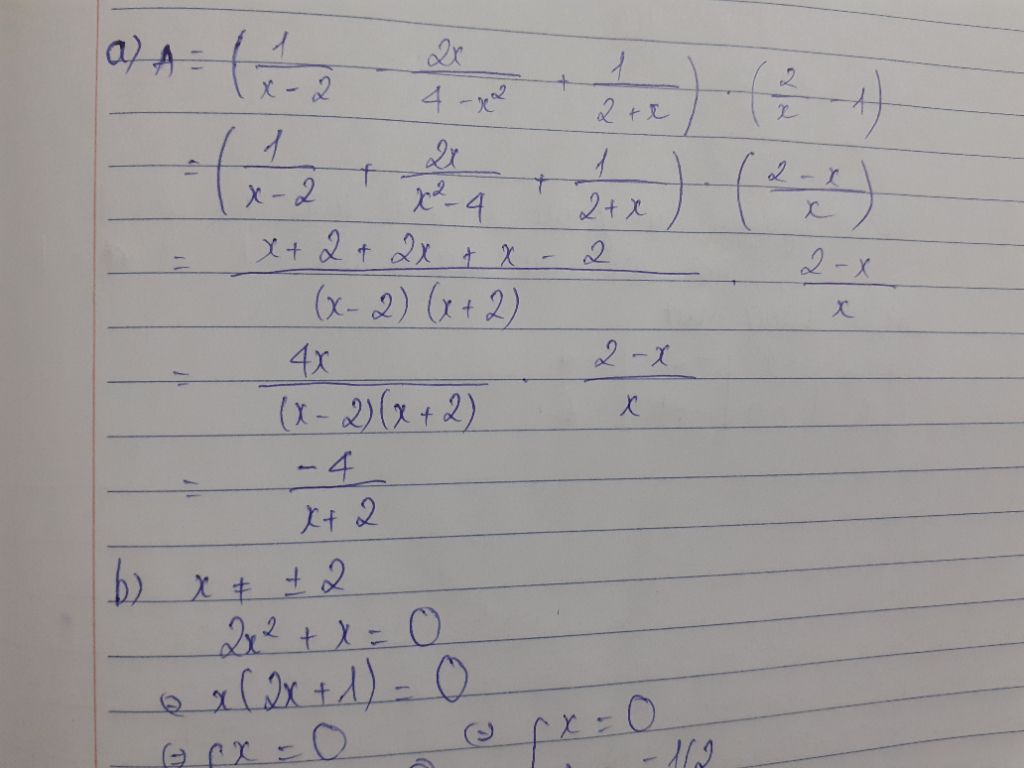 a) A = ( 1/(x-2) - 2x/(4-x²) + 1/(2+x) ) . ( 2/x - 1 )
= ( 1/(x-2) + 2x/(x²-4) + 1/(2+x) ) . ( (2-x)/x )
= (x+2+2x+x-2)/((x-2)(x+2)) . (2-x)/x
= 4x/((x-2)(x+2)) . (2-x)/x
= -4/(x+2)
b) x ≠ ±2
2x² + x = 0
⇔ x(2x+1) = 0
⇔ [ x = 0 ⇔ [ x = 0
-1/2